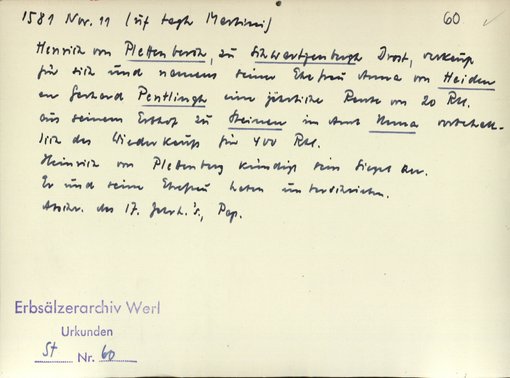 1581 Nov. 11 (uf tagh Martini) 60
Henrich von Plettenbercht, zu Schwartzenbergh Drost, verkauft
für sich und namens seiner Ehefrau Anna von Heiden
an Gerhard Pentlingh eine jährliche Rente von 20 Rtl.
aus seinem Erbhof zu Steinen im Amt Unna vorbehalt-
lich des Wiederkaufs für 400 Rtl.
Heinrich von Plettenberg kündigt sein Siegel an.
Er und seine Ehefrau haben unterschrieben.
Abschr. des 17. Jahrh.'s, Pap.
Erbsälzerarchiv Werl
Urkunden
St Nr. 60